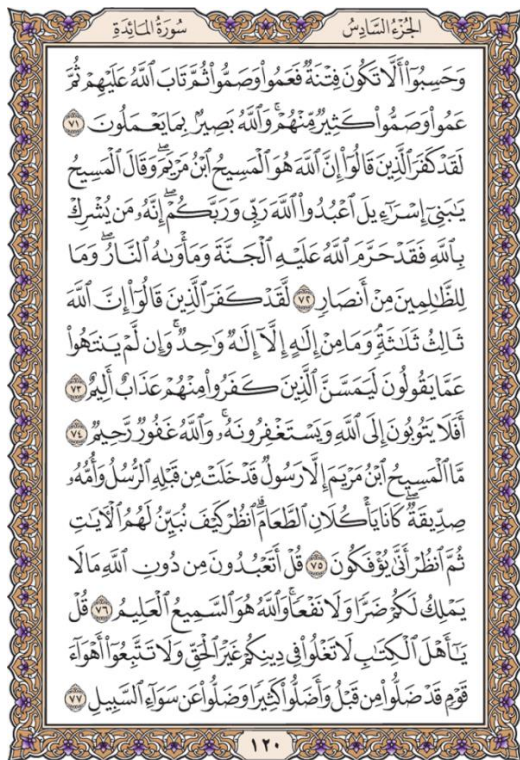 الجُزْءُ السَّادِسُ سُورَةُ المَائِدَةِ
وَحَسِبُوٓاْ أَلَّا تَكُونَ فِتۡنَةٞ فَعَمُواْ وَصَمُّواْ ثُمَّ تَابَ ٱللَّهُ عَلَيۡهِمۡ ثُمَّ
عَمُواْ وَصَمُّواْ كَثِيرٞ مِّنۡهُمۡۚ وَٱللَّهُ بَصِيرُۢ بِمَا يَعۡمَلُونَ ٧١
لَقَدۡ كَفَرَ ٱلَّذِينَ قَالُوٓاْ إِنَّ ٱللَّهَ هُوَ ٱلۡمَسِيحُ ٱبۡنُ مَرۡيَمَۖ وَقَالَ ٱلۡمَسِيحُ
يَٰبَنِيٓ إِسۡرَٰٓءِيلَ ٱعۡبُدُواْ ٱللَّهَ رَبِّي وَرَبَّكُمۡۖ إِنَّهُۥ مَن يُشۡرِكۡ
بِٱللَّهِ فَقَدۡ حَرَّمَ ٱللَّهُ عَلَيۡهِ ٱلۡجَنَّةَ وَمَأۡوَىٰهُ ٱلنَّارُۖ وَمَا
لِلظَّٰلِمِينَ مِنۡ أَنصَارٖ ٧٢ لَّقَدۡ كَفَرَ ٱلَّذِينَ قَالُوٓاْ إِنَّ ٱللَّهَ
ثَالِثُ ثَلَٰثَةٖۘ وَمَا مِنۡ إِلَٰهٍ إِلَّآ إِلَٰهٞ وَٰحِدٞۚ وَإِن لَّمۡ يَنتَهُواْ
عَمَّا يَقُولُونَ لَيَمَسَّنَّ ٱلَّذِينَ كَفَرُواْ مِنۡهُمۡ عَذَابٌ أَلِيمٌ ٧٣
أَفَلَا يَتُوبُونَ إِلَى ٱللَّهِ وَيَسۡتَغۡفِرُونَهُۥۚ وَٱللَّهُ غَفُورٞ رَّحِيمٞ ٧٤
مَّا ٱلۡمَسِيحُ ٱبۡنُ مَرۡيَمَ إِلَّا رَسُولٞ قَدۡ خَلَتۡ مِن قَبۡلِهِ ٱلرُّسُلُ وَأُمُّهُۥ
صِدِّيقَةٞۖ كَانَا يَأۡكُلَانِ ٱلطَّعَامَۗ ٱنظُرۡ كَيۡفَ نُبَيِّنُ لَهُمُ ٱلۡأٓيَٰتِ
ثُمَّ ٱنظُرۡ أَنَّىٰ يُؤۡفَكُونَ ٧٥ قُلۡ أَتَعۡبُدُونَ مِن دُونِ ٱللَّهِ مَا لَا
يَمۡلِكُ لَكُمۡ ضَرّٗا وَلَا نَفۡعٗاۚ وَٱللَّهُ هُوَ ٱلسَّمِيعُ ٱلۡعَلِيمُ ٧٦ قُلۡ
يَٰٓأَهۡلَ ٱلۡكِتَٰبِ لَا تَغۡلُواْ فِي دِينِكُمۡ غَيۡرَ ٱلۡحَقِّ وَلَا تَتَّبِعُوٓاْ أَهۡوَآءَ
قَوۡمٖ قَدۡ ضَلُّواْ مِن قَبۡلُ وَأَضَلُّواْ كَثِيرٗا وَضَلُّواْ عَن سَوَآءِ ٱلسَّبِيلِ ٧٧
١٢٠